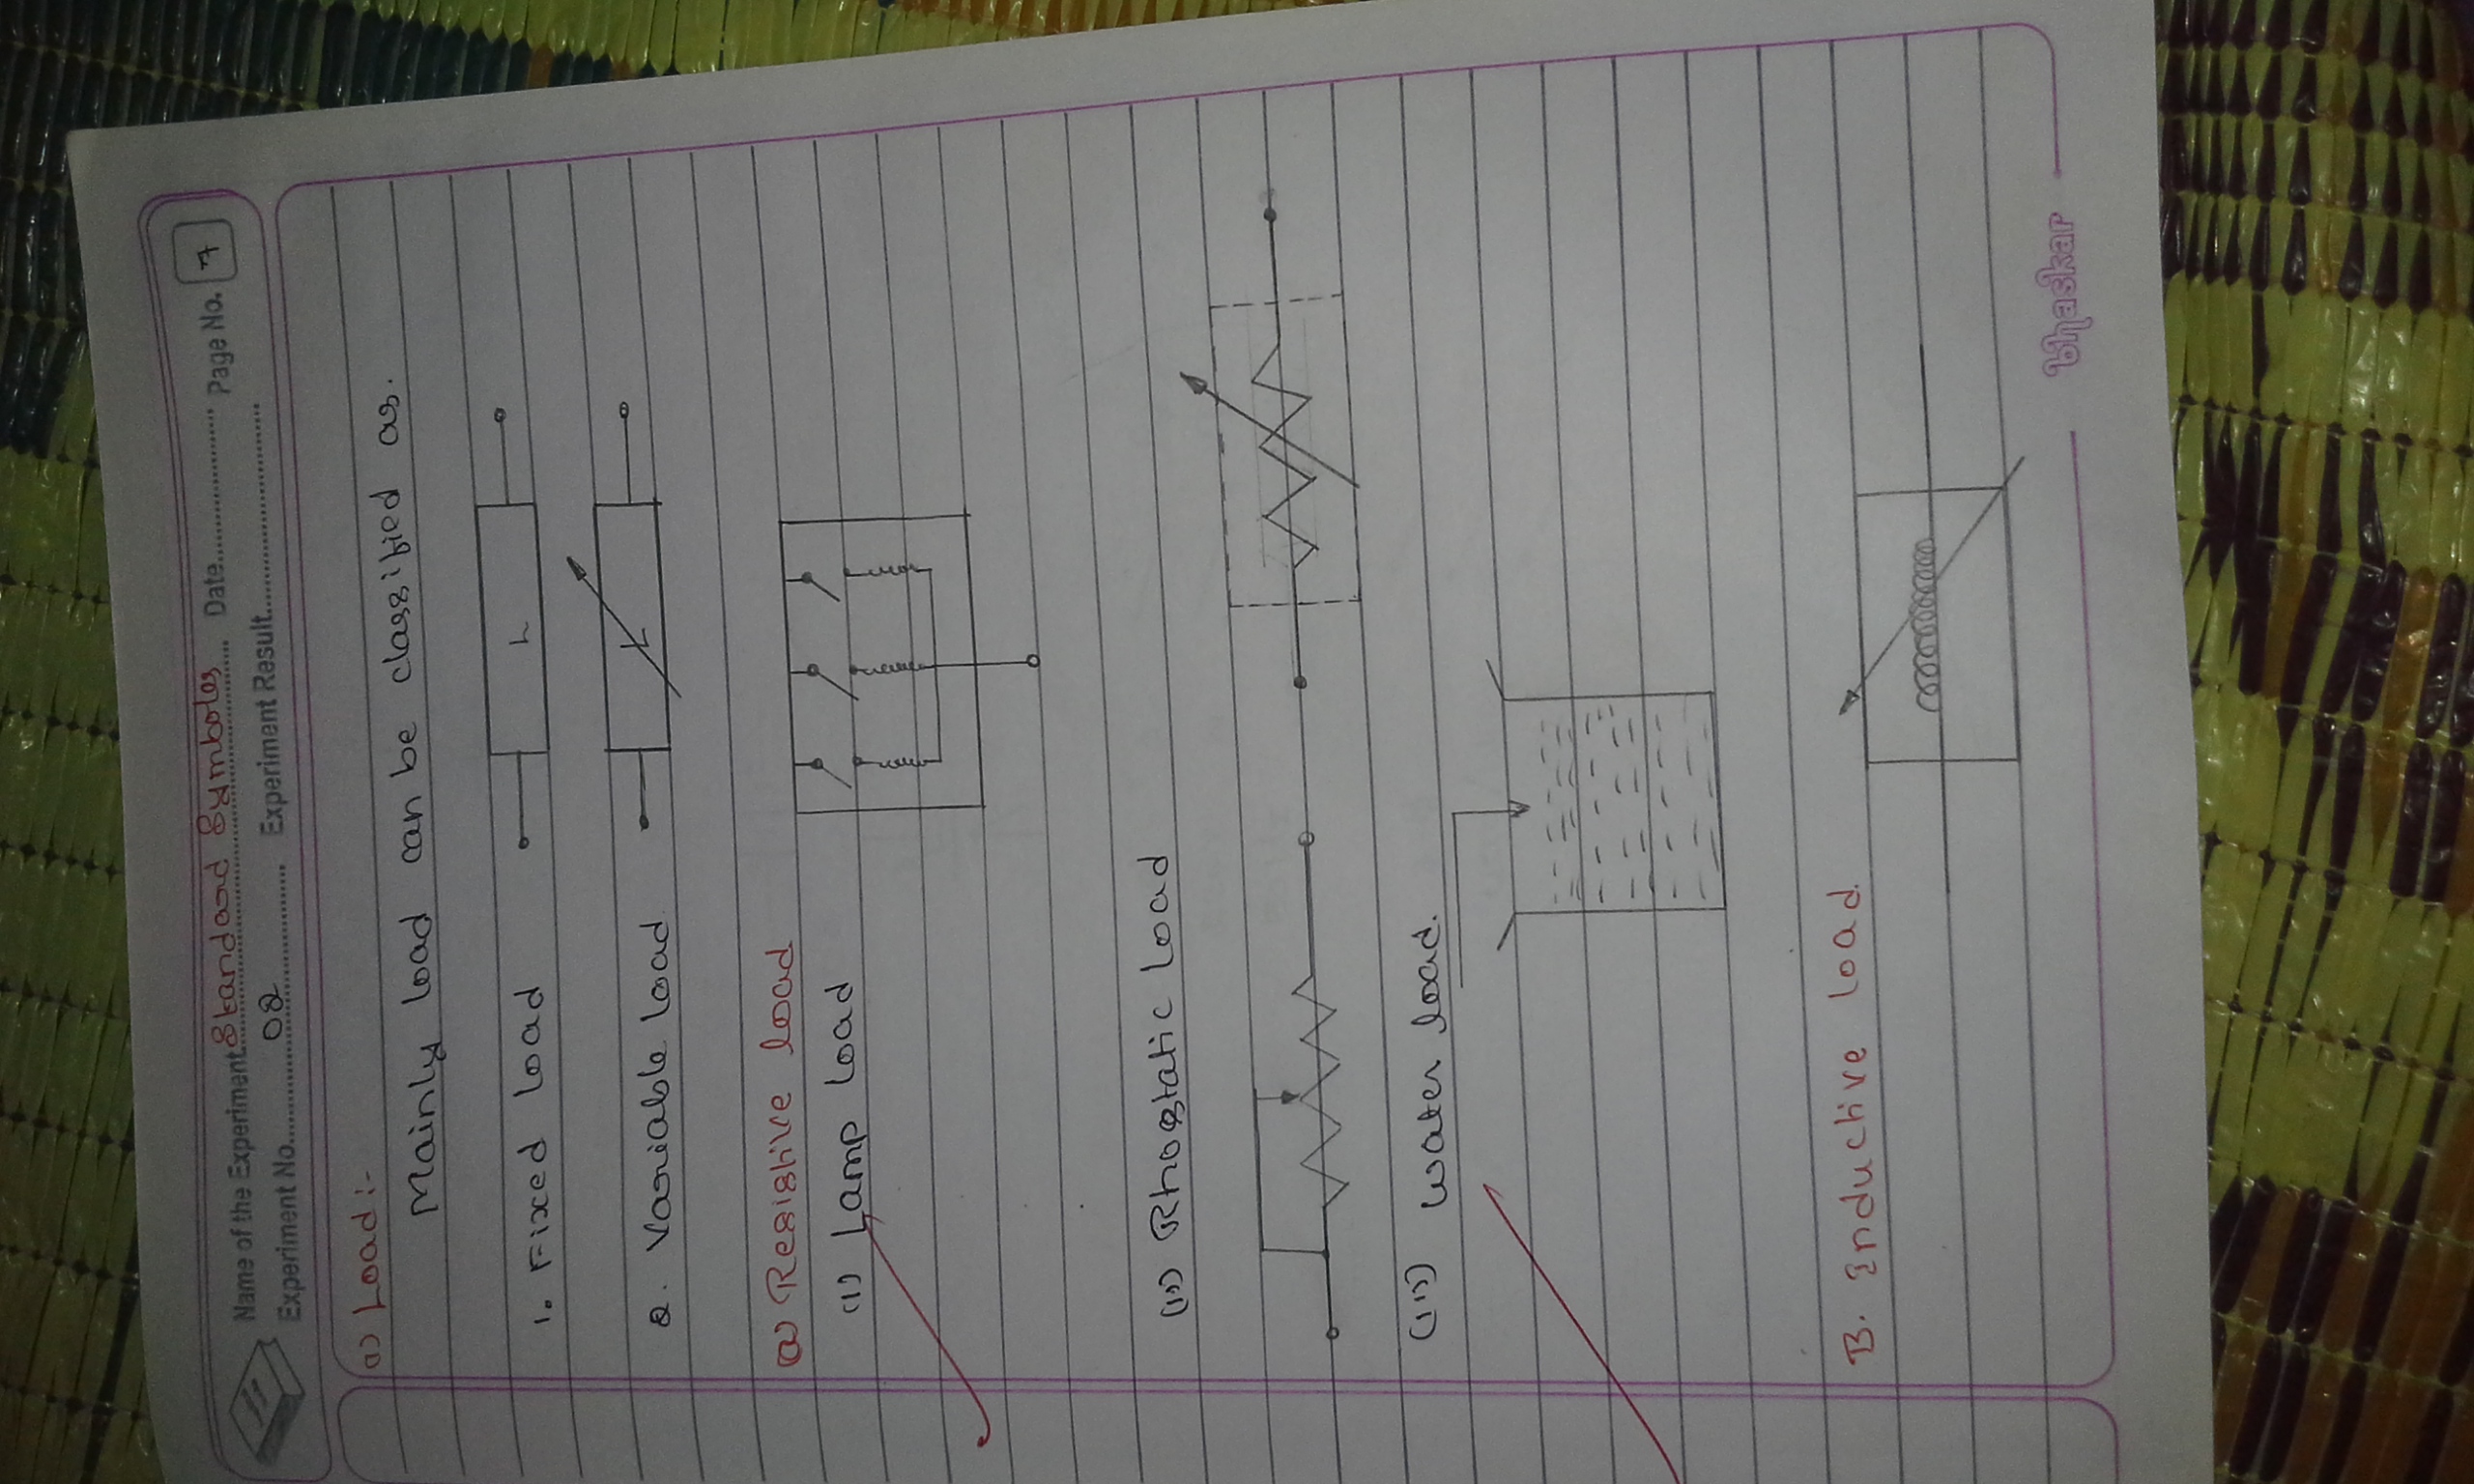 Name of the Experiment Standard Symboles Date Page No. 7
Experiment No. 02 Experiment Result
a) Load :-
Mainly load can be classified as.
1. Fixed load
L
2. Variable load
L
(a) Resistive load
(i) Lamp load
(ii) Rhostatic load
(iii) Water load.
B. Inductive load.
Bhaskar